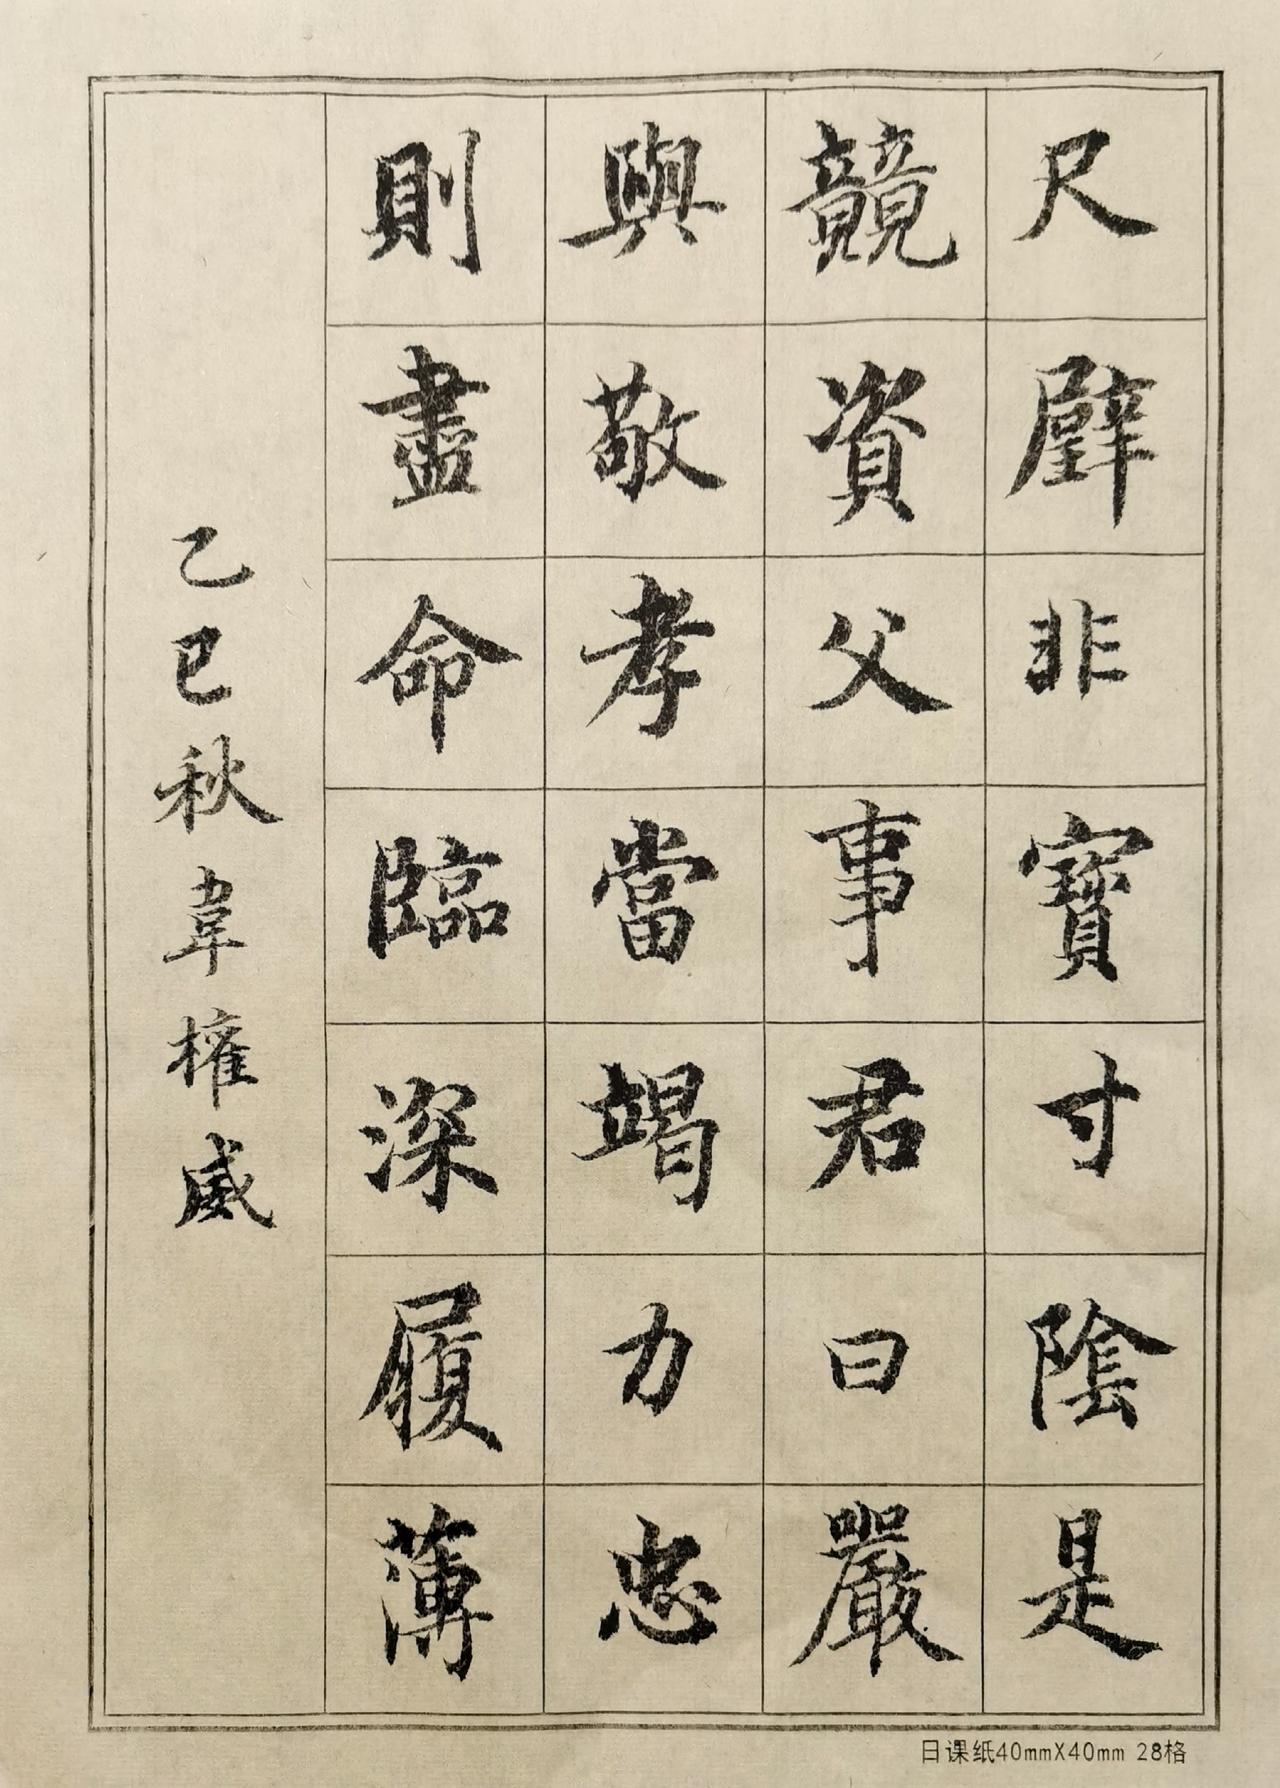 尺璧非寶寸陰是
競資父事君曰嚴
與敬孝當竭力忠
則盡命臨深履薄
乙巳秋韋權威
日课纸40mmX40mm 28格